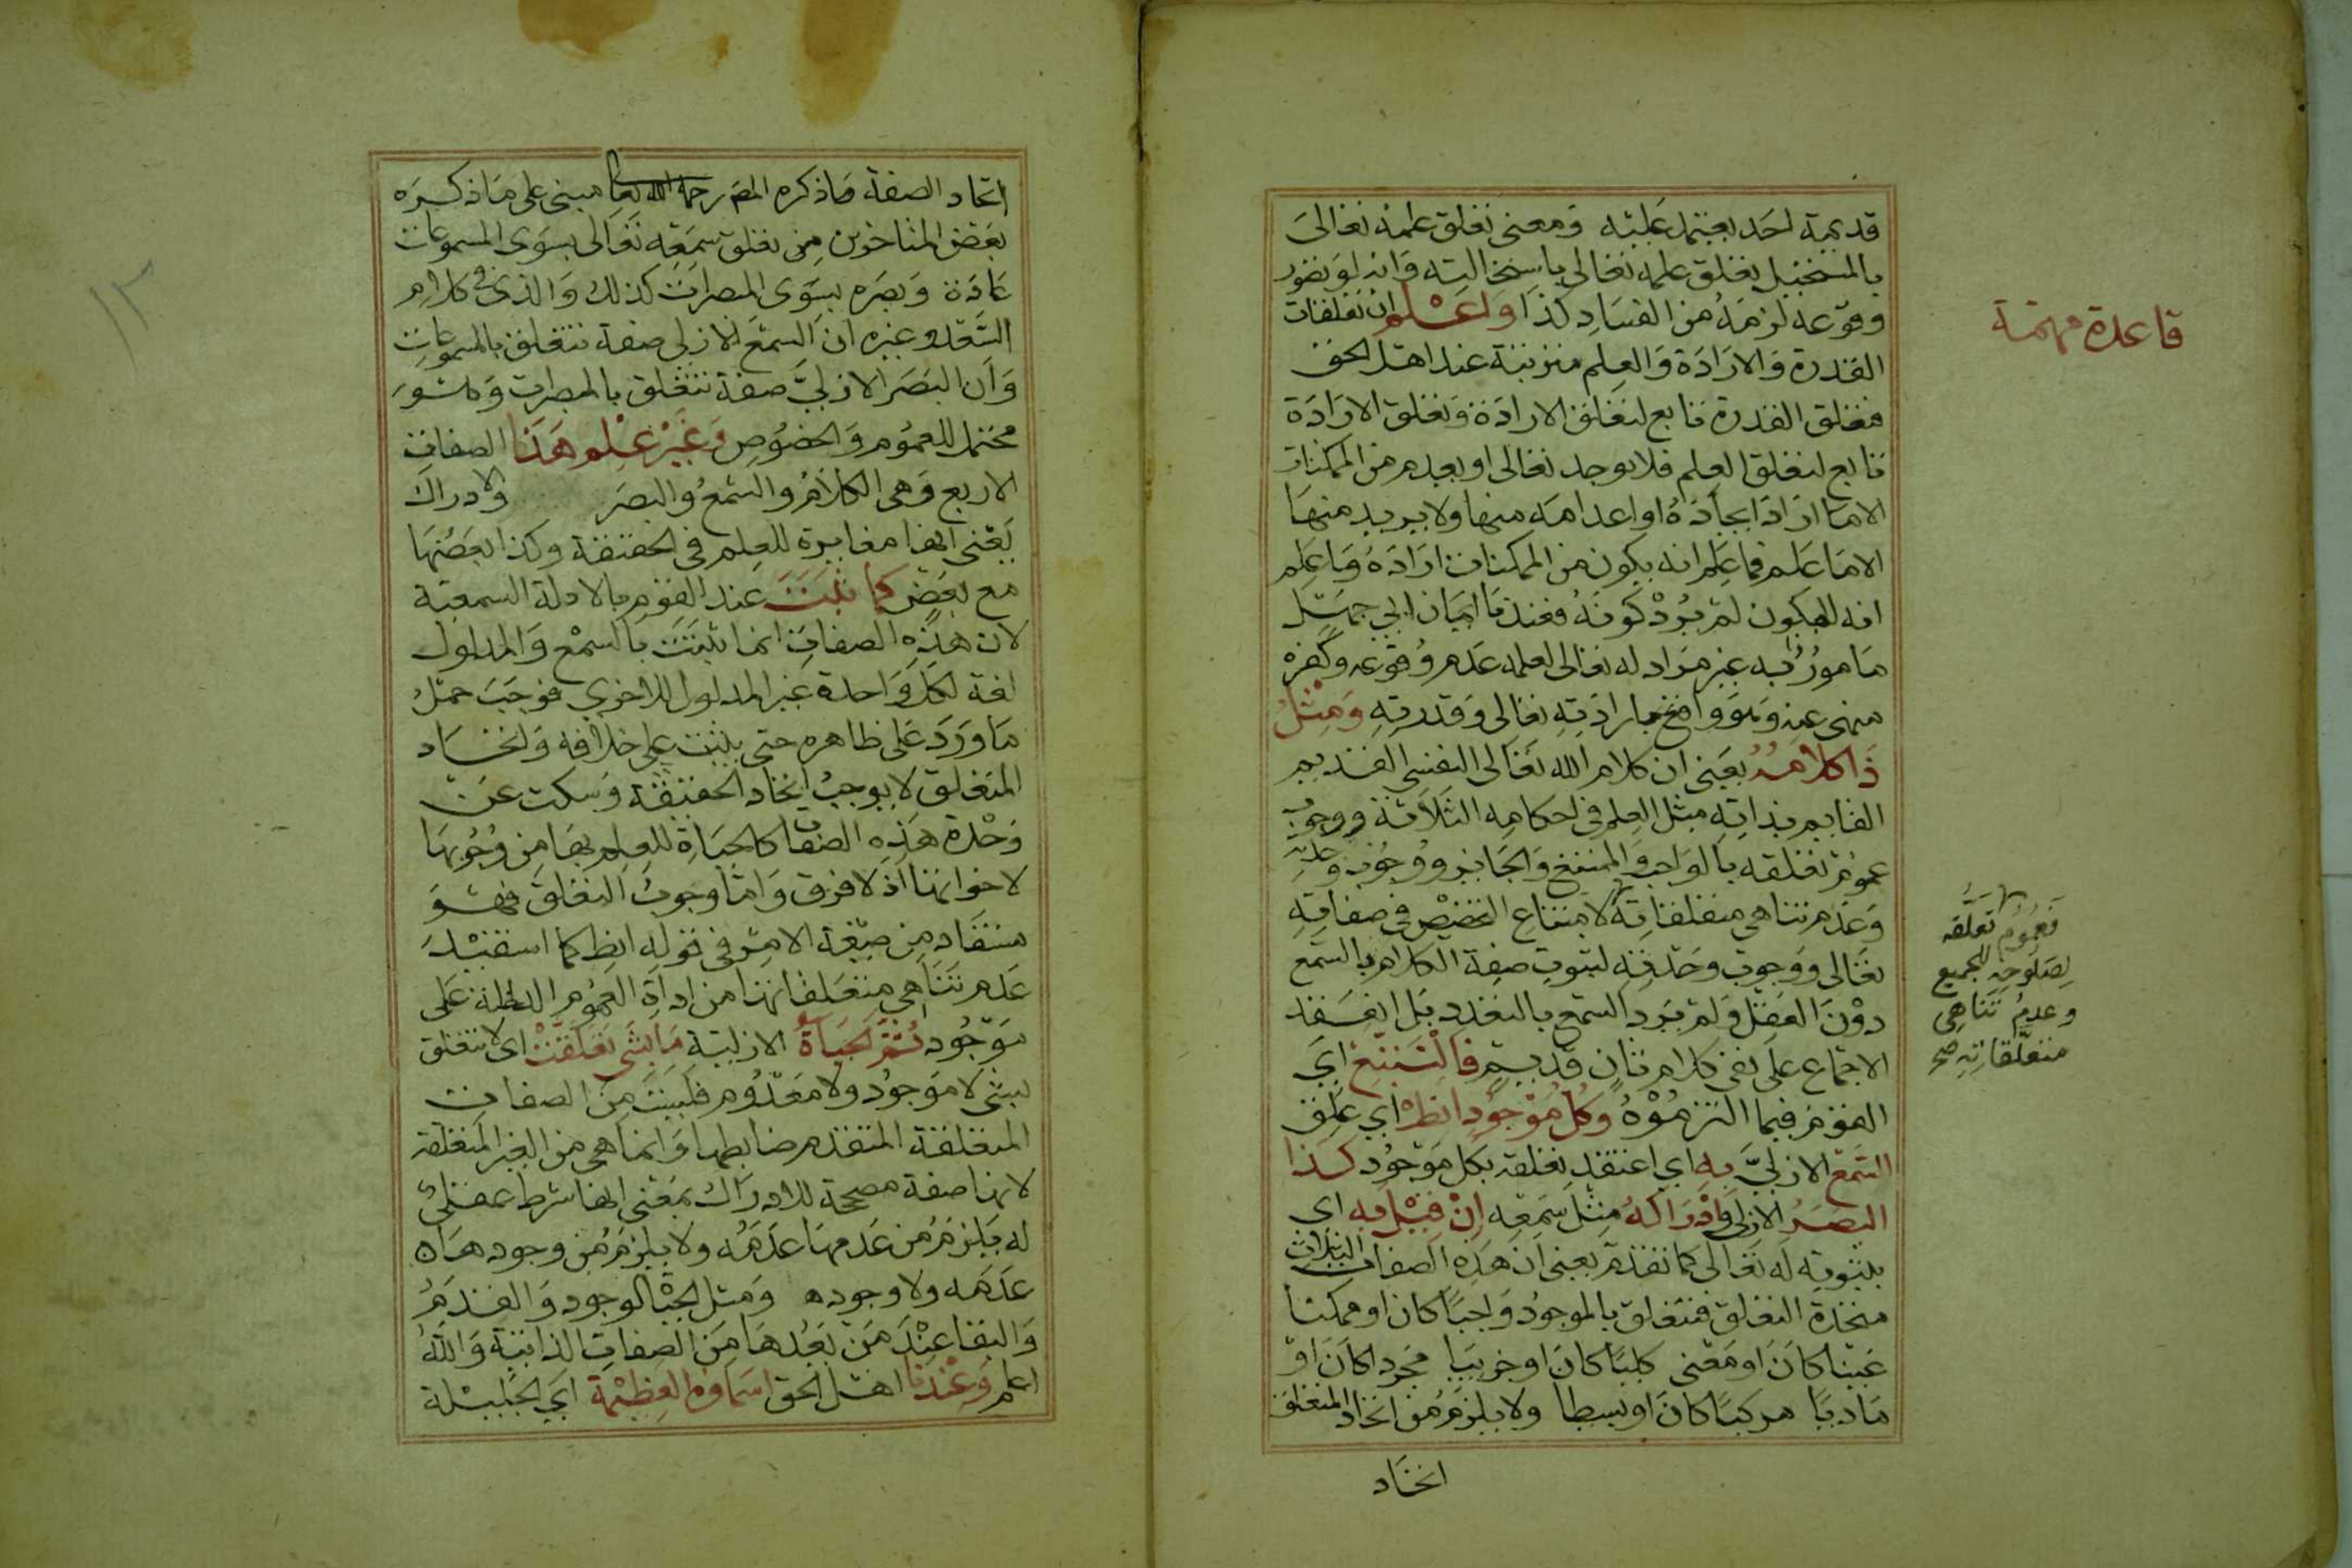 قديمة لاحد يعتمد عليه ومعنى تعلق علمه تعالى
بالمستحيل تعلق علمه تعالى باستحالته وانه لو تصور
وقوعه لزمه من الفساد كذا واعلم ان تعلقات
القدرة والارادة والعلم مترتبة عند اهل الحق
فتعلق القدرة تابع لتعلق الارادة وتعلق الارادة
تابع لتعلق العلم فلا يوجد تعالى او يعدم من الممكنات
الا ما اراد ايجاده او اعدامه منها ولا يريد منها
الا ما علم فما علم انه يكون من الممكنات اراده وما علم
انه لا يكون لم يرد كونه فعندنا ايمان ابي جهل
مامور به غير مراد له تعالى لعلمه عدم وقوعه وكفره
منهي عنه وهو واقع بارادته تعالى وقدرته ومثل
ذا كلامه يعني ان كلام الله تعالى النفسي القديم
القايم بذاته مثل العلم في احكامه الثلاثة ووجوب
عموم تعلقه بالواجب والممتنع والجايز ووجوب وحدته
وعدم تناهي متعلقاته لامتناع التخصيص في صفاته
تعالى ووجوب وحدته لثبوت صفة الكلام بالسمع
دون العقل ولم يرد السمع بالتعدد بل انعقد
الاجماع على نفي كلام ثان قديم فالنتبع اي
القوم فيما التزموه وكل موجود انط اي علق
السمع الازلي به اي اعتقد تعلقه بكل موجود كذا
البصر الازلي وادراكه مثل سمعه ان قيل به اي
بثبوته له تعالى كما تقدم يعني ان هذه الصفات الثلاث
متحدة التعلق فتتعلق بالموجود واجبا كان او ممكنا
عينا كان او معنى كليا كان او جزييا مجردا كان او
ماديا مركبا كان او بسيطا ولا يلزم من اتحاد المتعلق
اتحاد
قاعدة مهمة
فعموم تعلقه
لصلوحه للجميع
وعدم تناهي
متعلقاته صح
اتحاد الصفة وما ذكره المص رحمه الله تعالى مبني على ما ذكره
بعض المتاخرين من تعلق سمعه تعالى بسوى المسموعات
عادة وبصره بسوى المبصرات كذلك والذي في كلام
السعد وغيره ان السمع الازلي صفة تتعلق بالمسموعات
وان البصر الازلي صفة تتعلق بالمبصرات وهو
محتمل للعموم والخصوص وغير علم هذا الصفات
الاربع وهي الكلام والسمع والبصر والادراك
يعني انها مغايرة للعلم في الحقيقة وكذا بعضها
مع بعض كما ثبت عند القوم بالادلة السمعية
لان هذه الصفات انما ثبتت بالسمع والمدلول
لغة لكل واحدة غير المدلول للاخرى فوجب حمل
ما ورد على ظاهره حتى يثبت على خلافه واتحاد
المتعلق لا يوجب اتحاد الحقيقة وسكت عن
وحدة هذه الصفات كالحياة للعلم بها من وجوبها
لاخواتها اذ لا فرق واما وجوب التعلق فهو
مستفاد من صيغة الامر في قوله انط كما استفيد
عدم تناهي متعلقاتها من اداة العموم الداخلة على
موجود ثم الحياة الازلية ما بشي تعلقت اي لا تتعلق
بشي لا موجود ولا معدوم فليست من الصفات
المتعلقة المتقدم ضابطها وانما هي من الغير المتعلقة
لانها صفة مصححة للادراك بمعنى انها شرط عقلي
له يلزم من عدمها عدمه ولا يلزم من وجودها
عدمه ولا وجوده ومثل الحياة الوجود والقدم
والبقا عند من يعدها من الصفات الذاتية والله
اعلم وعندنا اهل الحق اسماوه العظيمة اي الجليلة
١٢